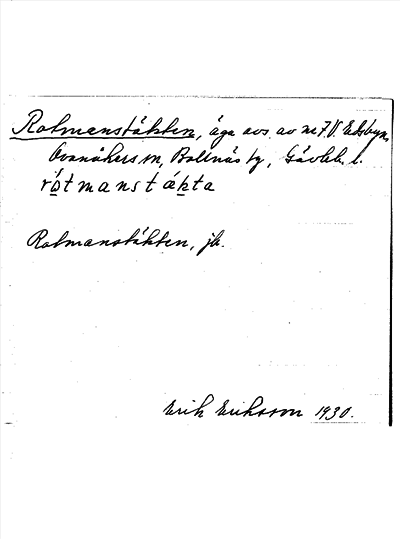 Rotmanstäkten, äga avs. av nr 7 V. Edsbyn,
Ovanåkers sn, Bollnäs tg, Gävleb. l.
rótmanstäkta
Rotmanstäkten, jb.
Erik Eriksson 1930.